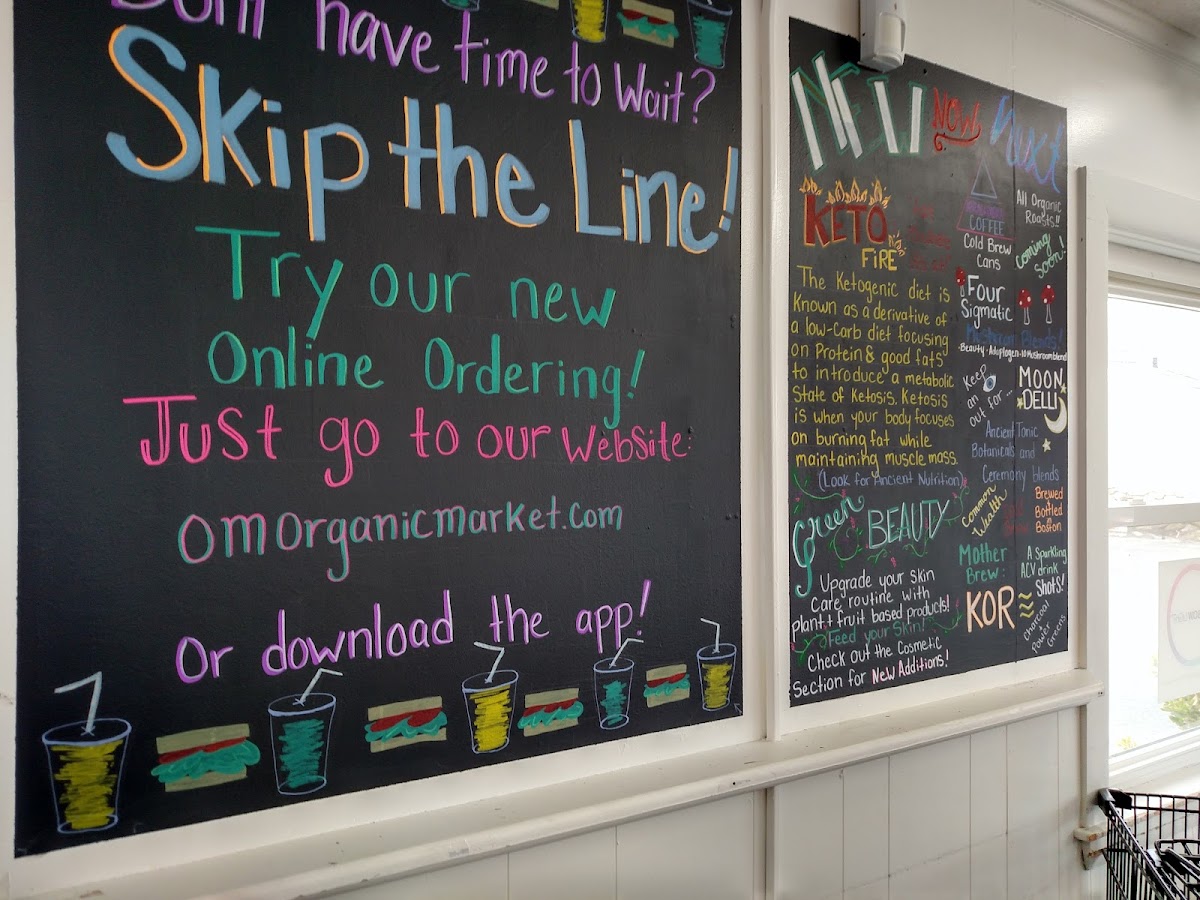 Dont have time to Wait?
Skip the Line!
Try our new
Online Ordering!
Just go to our website:
omorganicmarket.com
Or download the app!
NEW NOW Next
KETO
FiRE
The Ketogenic diet is
known as a derivative of
a low-carb diet focusing
on Protein & good fats
to introduce a metabolic
State of Ketosis. Ketosis
is when your body focuses
on burning fat while
maintaining muscle mass.
(Look for Ancient Nutrition)
Green BEAUTY
Upgrade your skin
Care routine with
plant + fruit based products!
Feed your skin!
Check out the Cosmetic
Section for New Additions!
COFFEE
Cold Brew
Cans
All Organic
Roasts!!
Coming
Soon!
Four
Sigmatic
Mushroom Blends!
Beauty · Adaptogen · 10 Mushroom blend
Keep
an
out for...
MOON
DELI
Ancient Tonic
Botanicals and
Ceremony blends
Common
Wealth
Brewed
+
Bottled
in
Boston
Mother
Brew:
A Sparkling
ACV drink
KOR
Shots!
Charcoal
+
Power
Greens